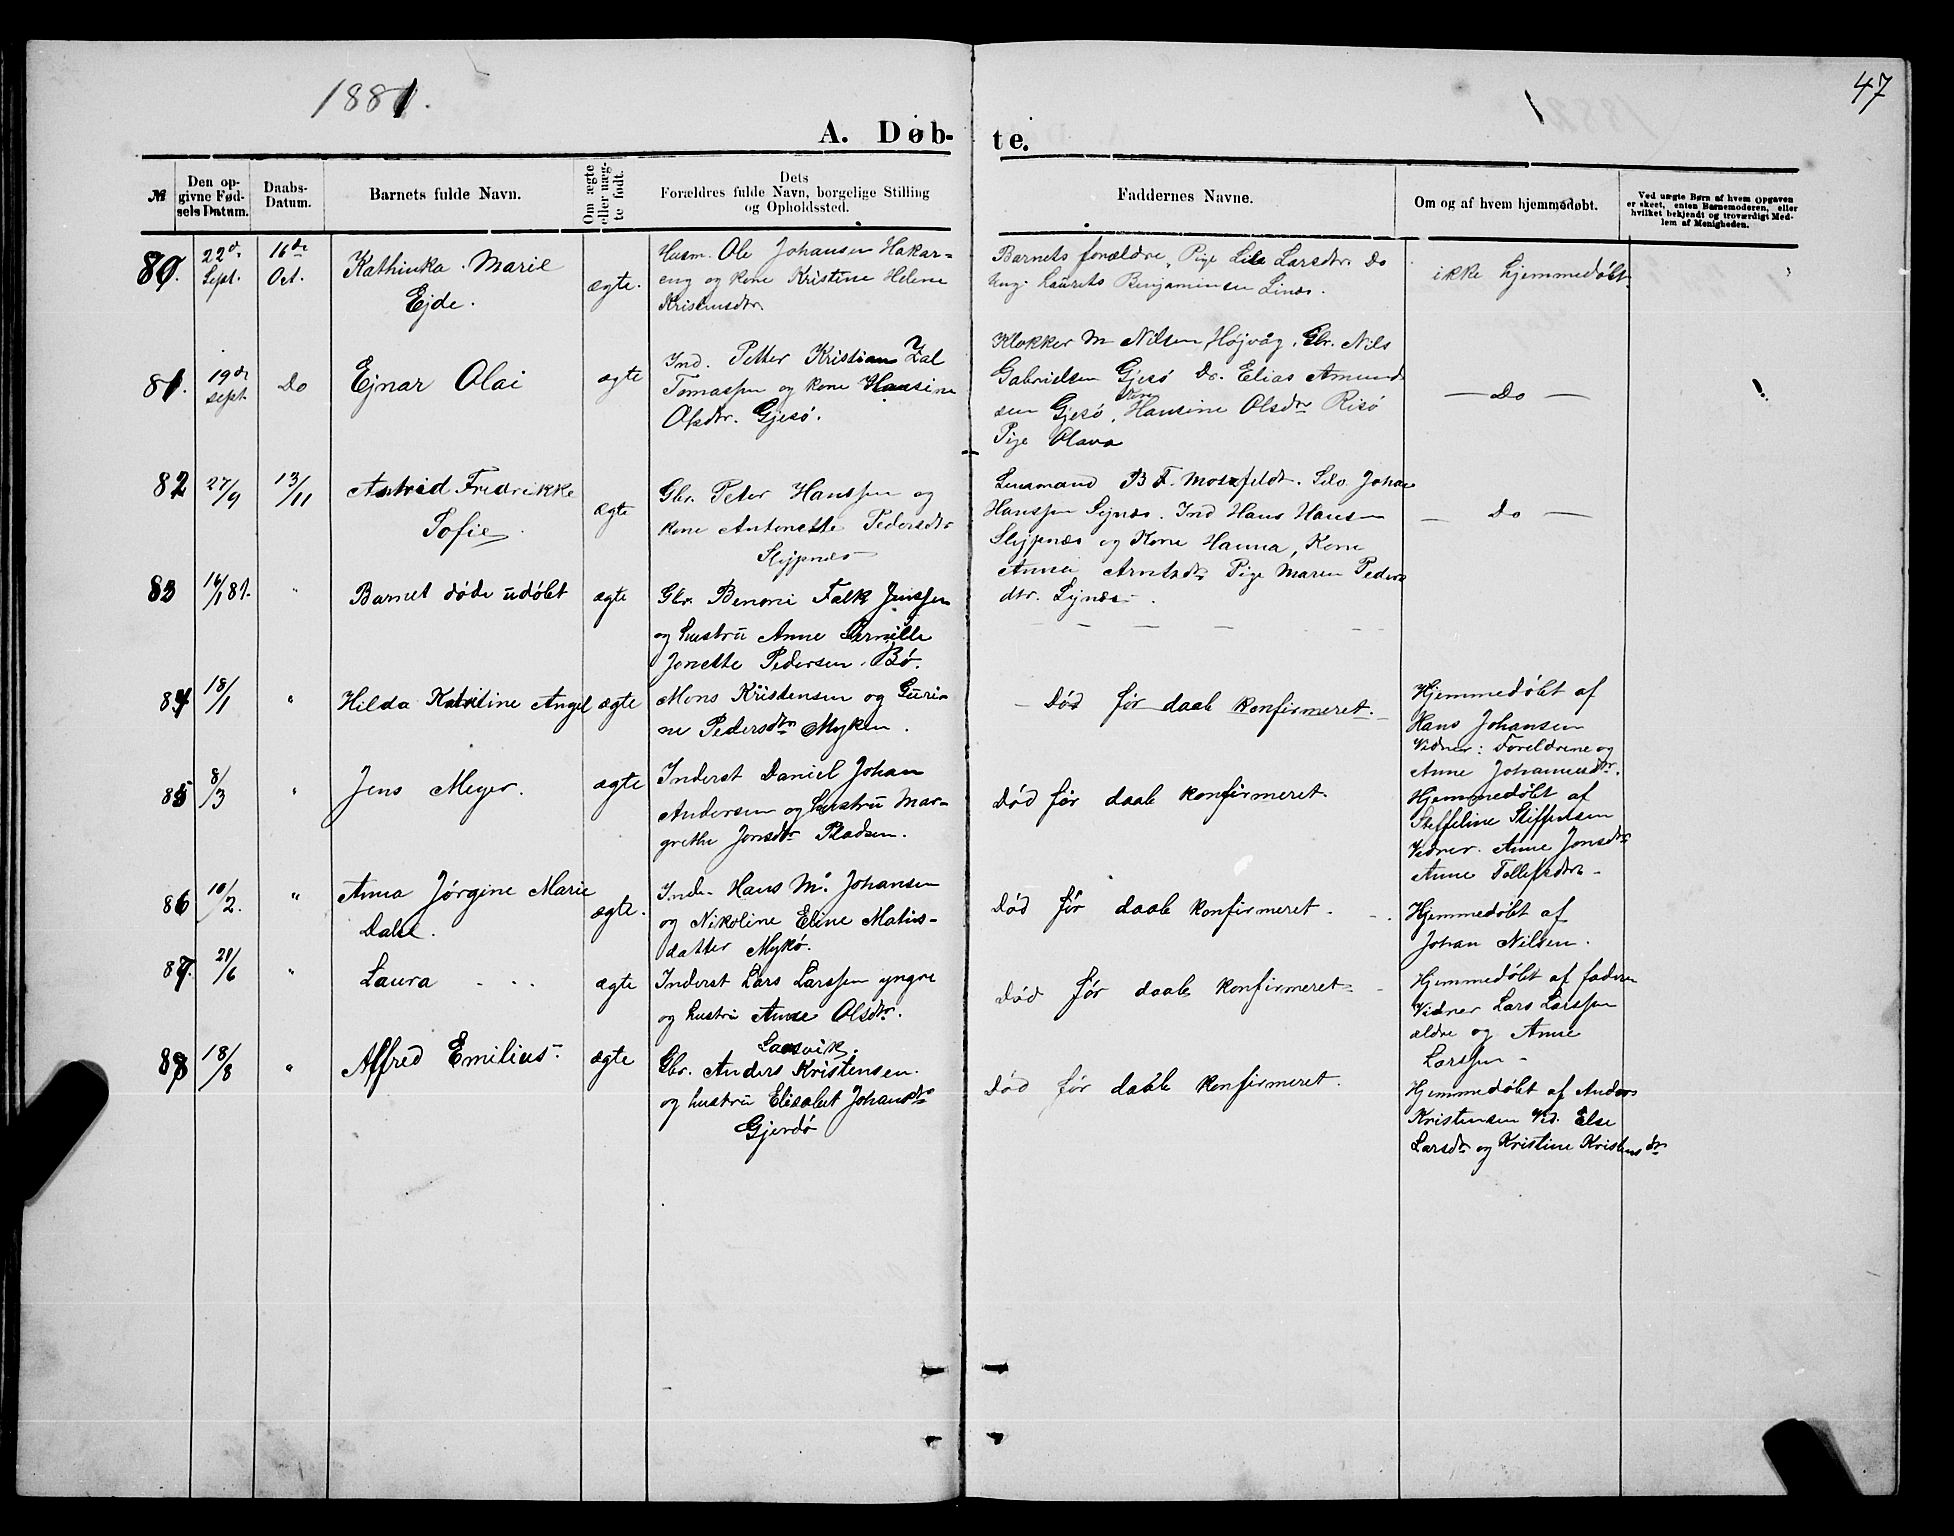 1881.
1
47
A. Døb-
te.
№
Den op-
givne Fød-
sels Datum.
Daabs-
Datum.
Barnets fulde Navn.
Om ægte
eller uæg-
te født.
Dets
Forældres fulde Navn, borgelige Stilling
og Opholdssted.
Faddernes Navne.
Om og af hvem hjemmedøbt.
Ved uægte Børn af hvem Opgaven
er skeet, enten Barnemoderen, eller
hvilket bekjendt og troværdigt Med-
lem af Menigheden.
80.
22de
Sept.
16de
Oct.
Kathinka Marie
Ejde.
ægte.
Husm. Ole Johansen Hakar-
eng og kone Kristine Helene
Kristensdtr
Barnets forældre, Pige Lise Larsdtr Do
Ung. Laurets Benjaminsen Linæs.
ikke hjemmedøbt
81.
19de
sept
Do
Ejnar Olai
ægte
Ind. Petter Kristian Zal
Tomassen og kone Hansine
Olsdtr. Gjesø.
Klokker M Nilsen Højvåg, Gbr. Nils
Gabrielsen Gjesø Do. Elias Amund
sen Gjesø, Kone Hansine Olsdtr Risø
Pige Olava
— Do —
82
27/9
13/11
Astrid Fredrikke
Sofie
ægte
Gbr. Peter Hanssen og
kone Antonette Pedersdtr
Slyjpnæs
Lensmand B F. Mosfeldt. Selv Johan
Hanssen Sejnæs. Ind Hans Hansen
Slyjpnæs og Kone Hanna, Kone
Anna Arntsdtr Pige Maren Peders
dtr. Sejnæs
— Do —
83
16/1 81.
"
Barnet døde udøbt
ægte
Gbr. Benoni Falk Jenssen
og hustru Anne Pernille
Jonette Pedersen. Bø.
84
18/1
"
Hilda Katrine Angel
ægte
Mons Kristensen og Guri-
ne Pedersdtr Myken.
Død før daab konfirmeret.
Hjemmedøbt af
Hans Johansen
Vidner: Foreldrene og
Anne Johannesdtr.
85
8/3
"
Jens Meyer.
ægte
Inderst Daniel Johan
Andersen og hustru Mar-
grethe Jonsdtr Pladsen.
Død før daab konfirmeret.
Hjemmedøbt af
Steffeline Steffensen
Vidner. Anne Jonsdtr
Anne Tollefsdtr
86
10/2.
"
Anna Jørgine Marie
Dalse.
ægte.
Ind. Hans M. Johansen
og Nikoline Eline Matis-
datter Mykø.
Død før daab konfirmeret.
Hjemmedøbt af
Johan Nilsen.
87.
21/6
"
Laura
ægte
Inderst Lars Larssen yngre
og hustru Anne Olsdtr.
Laasvik.
Død før daab konfirmeret
Hjemmedøbt af faderen
Vidner Lars Larssen
ældre og Anne
Larssen
88
18/8
"
Alfred Emilius
ægte
Gbr. Anders Kristensen.
og hustru Elisabet Johansdtr
Gjerdø
Død før daab konfirmeret.
Hjemmedøbt af Anders
Kristensen Vid. Else
Larsdtr og Kristine Kristensdtr